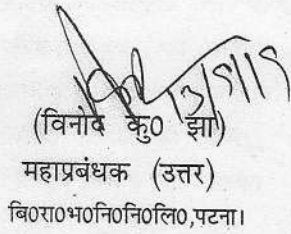 13/5/15
(विनोद कु0 झा)
महाप्रबंधक (उत्तर)
बि0रा0भ0नि0नि0लि0,पटना।